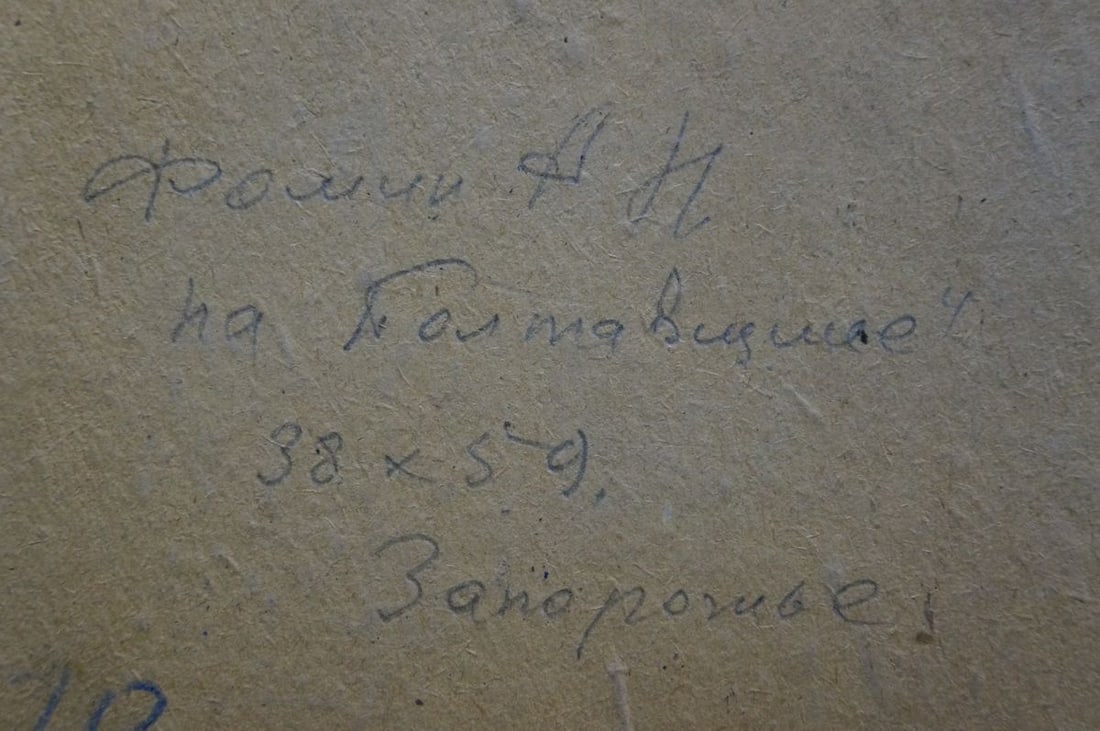 Фомин А Н
на Полтавщине"
38 x 59.
Запорожье.
10